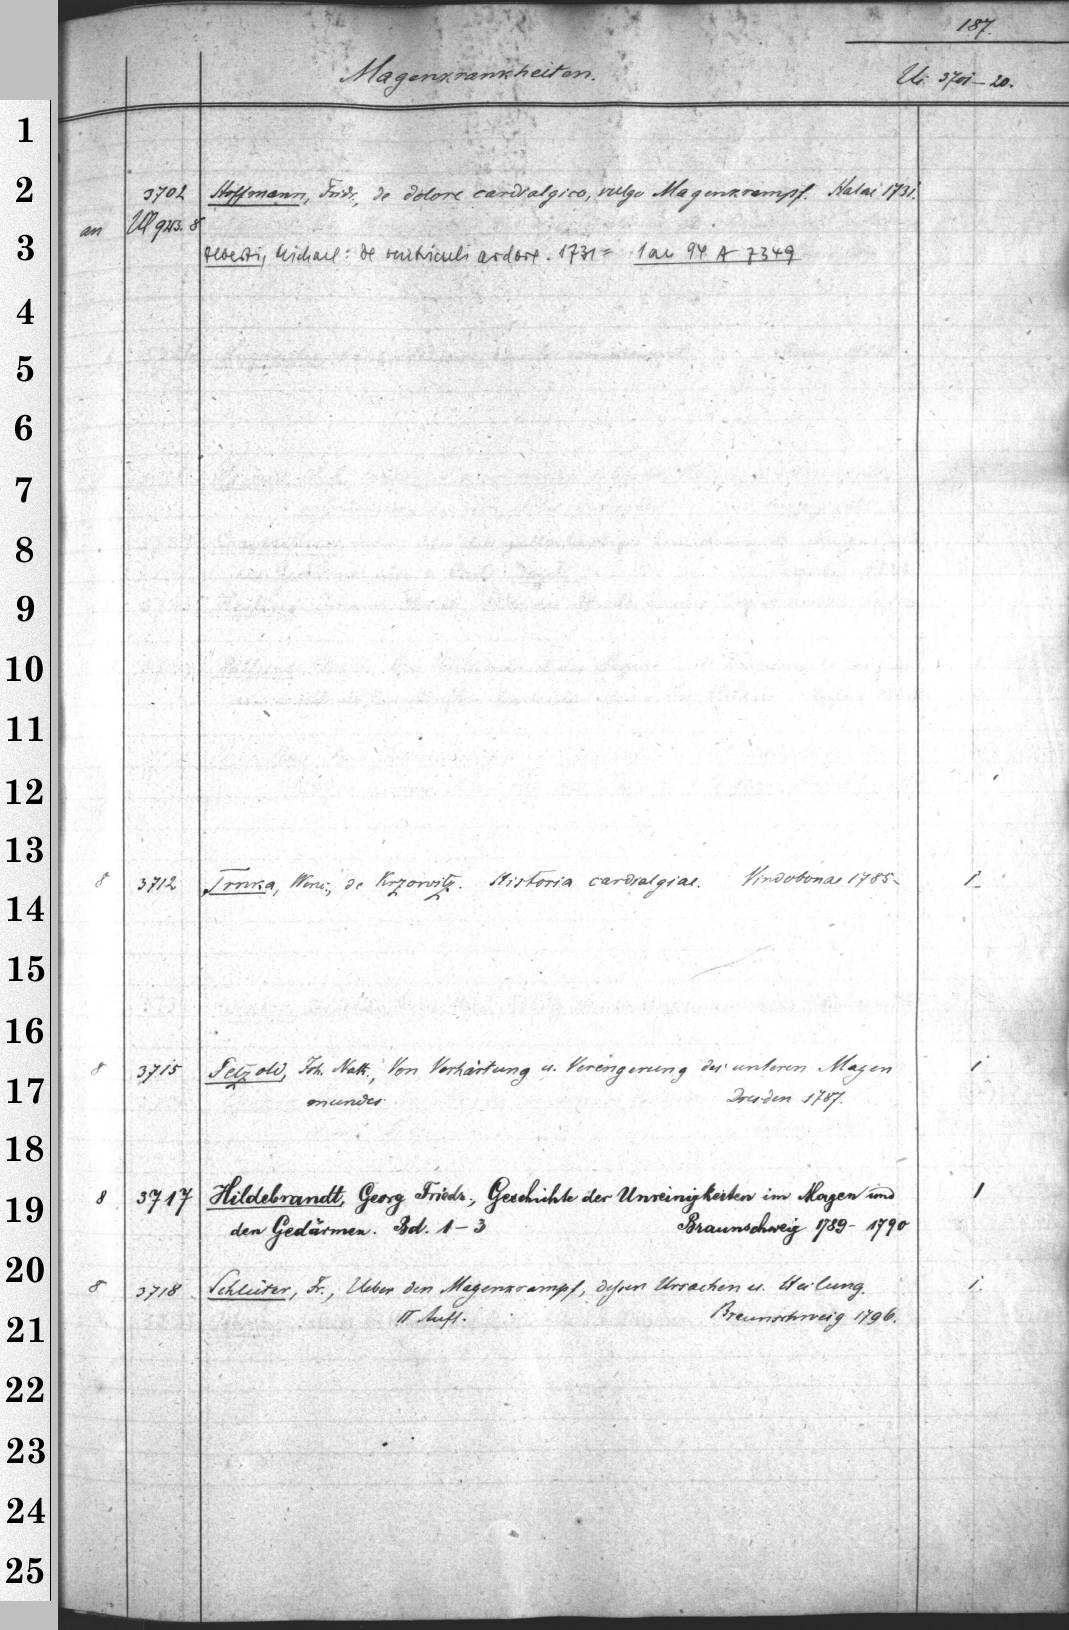 187.
Magenkrankheiten. Ui 3701–20.
1
2 3702 Hoffmann, Fridr., de dolore cardialgico, vulgo Magenkrampf. Halae 1731.
an Ul 923. 8
3 Alberti, Michael: De ventriculi ardore. 1731 = 1 an 94 A 7349
4
5
6
7
8
9
10
11
12
13
8 3712 Trnka, Wenc., de Krzowitz. Historia cardialgiae. Vindobonae 1785. 1.
14
15
16
8 3715 Petzold, Joh. Nath., Von Verhärtung u. Verengerung des unteren Magen 1
17 mundes. Dresden 1787.
18
19 8 3717 Hildebrandt, Georg Friedr., Geschichte der Unreinigkeiten im Magen und 1
den Gedärmen. Bd. 1–3 Braunschweig 1789–1790
20 8 3718 Schlüter, Fr., Ueber den Magenkrampf, dessen Ursachen u. Heilung. 1.
21 II Aufl. Braunschweig 1796.
22
23
24
25